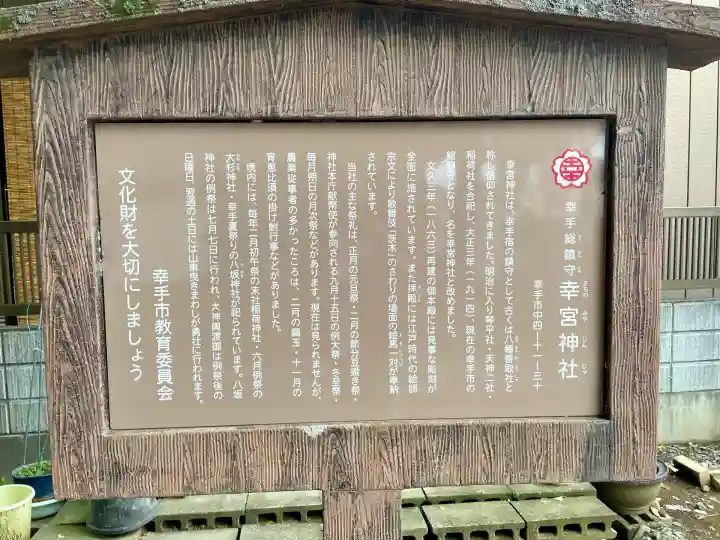 幸
幸手総鎮守 幸宮神社
さって さちの みや じん じゃ
幸手市中四-十一-三十
幸宮神社は、幸手宿の鎮守として古くは八幡香取社と
称し信仰されてきました。明治に入り琴平社・天神二社・
稲荷社を合祀し、大正三年(一九一四)、現在の幸手市の
総鎮守となり、名を幸宮神社と改めました。
文久三年(一八六三)再建の御本殿には見事な彫刻が
全面に施されています。また拝殿には江戸時代の絵師
宗文により歌舞伎「茨木」のさわりの場面の絵馬一対が奉納
されています。
当社の主な祭礼は、正月の元旦祭・二月の節分豆撒き祭・
神社本庁献幣使が参向される九月十五日の例大祭・冬至祭・
毎月朔日の月次祭などがあります。現在は見られませんが、
農業従事者の多かったころは、二月の繭玉・十一月の
育恵比須の掛け鮒行事などがありました。
境内には、毎年二月初午祭の末社稲荷神社・六月例祭の
大杉神社・幸手夏祭りの八坂神社が祀られています。八坂
神社の例祭は七月七日に行われ、大神輿渡御は例祭後の
日曜日、翌週の土日には山車曳きまわしが勇壮に行われます。
文化財を大切にしましょう
幸手市教育委員会